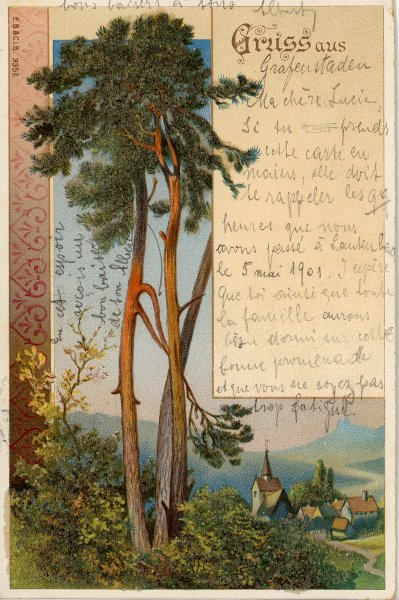 bons baisers à tous
Albert
E.B.&C.i.B. 3357
Gruss aus
Grafenstaden
Ma chère Lucie,
Si tu prends
cette carte en
mains, elle doit
te rappeler les qq
heures que nous
avons passé à Lautenbach
le 5 mai 1901. J'espère
que toi ainsi que toute
la famille aurons
bien dormi sur cette
bonne promenade
et que vous ne soyez pas
trop fatigué.
En cet espoir
avec un
bon baiser
de ton